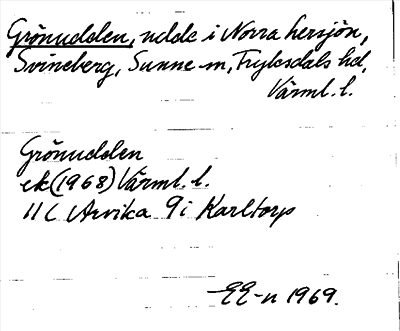 Grönudden, udde i Norra hersjön,
Svineberg, Sunne sn, Fryksdals hd,
Värml. l.
Grönudden
ek (1968) Värml. l.
11 C Arvika 9 i Karltorp
EE-n 1969.